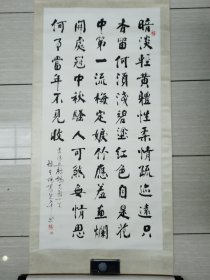 暗淡輕黃體性柔情疏迹遠只
香留何須淺碧深紅色自是花
中第一流梅定妒菊應羞畫欄
開處冠中秋騷人可煞無情思
何事當年不見收